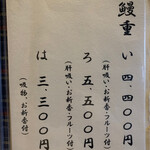 鰻重
い 四、四〇〇円
(肝吸い・お新香・フルーツ付)
ろ 五、五〇〇円
(肝吸い・お新香・フルーツ付)
は 三、三〇〇円
(吸物・お新香付)